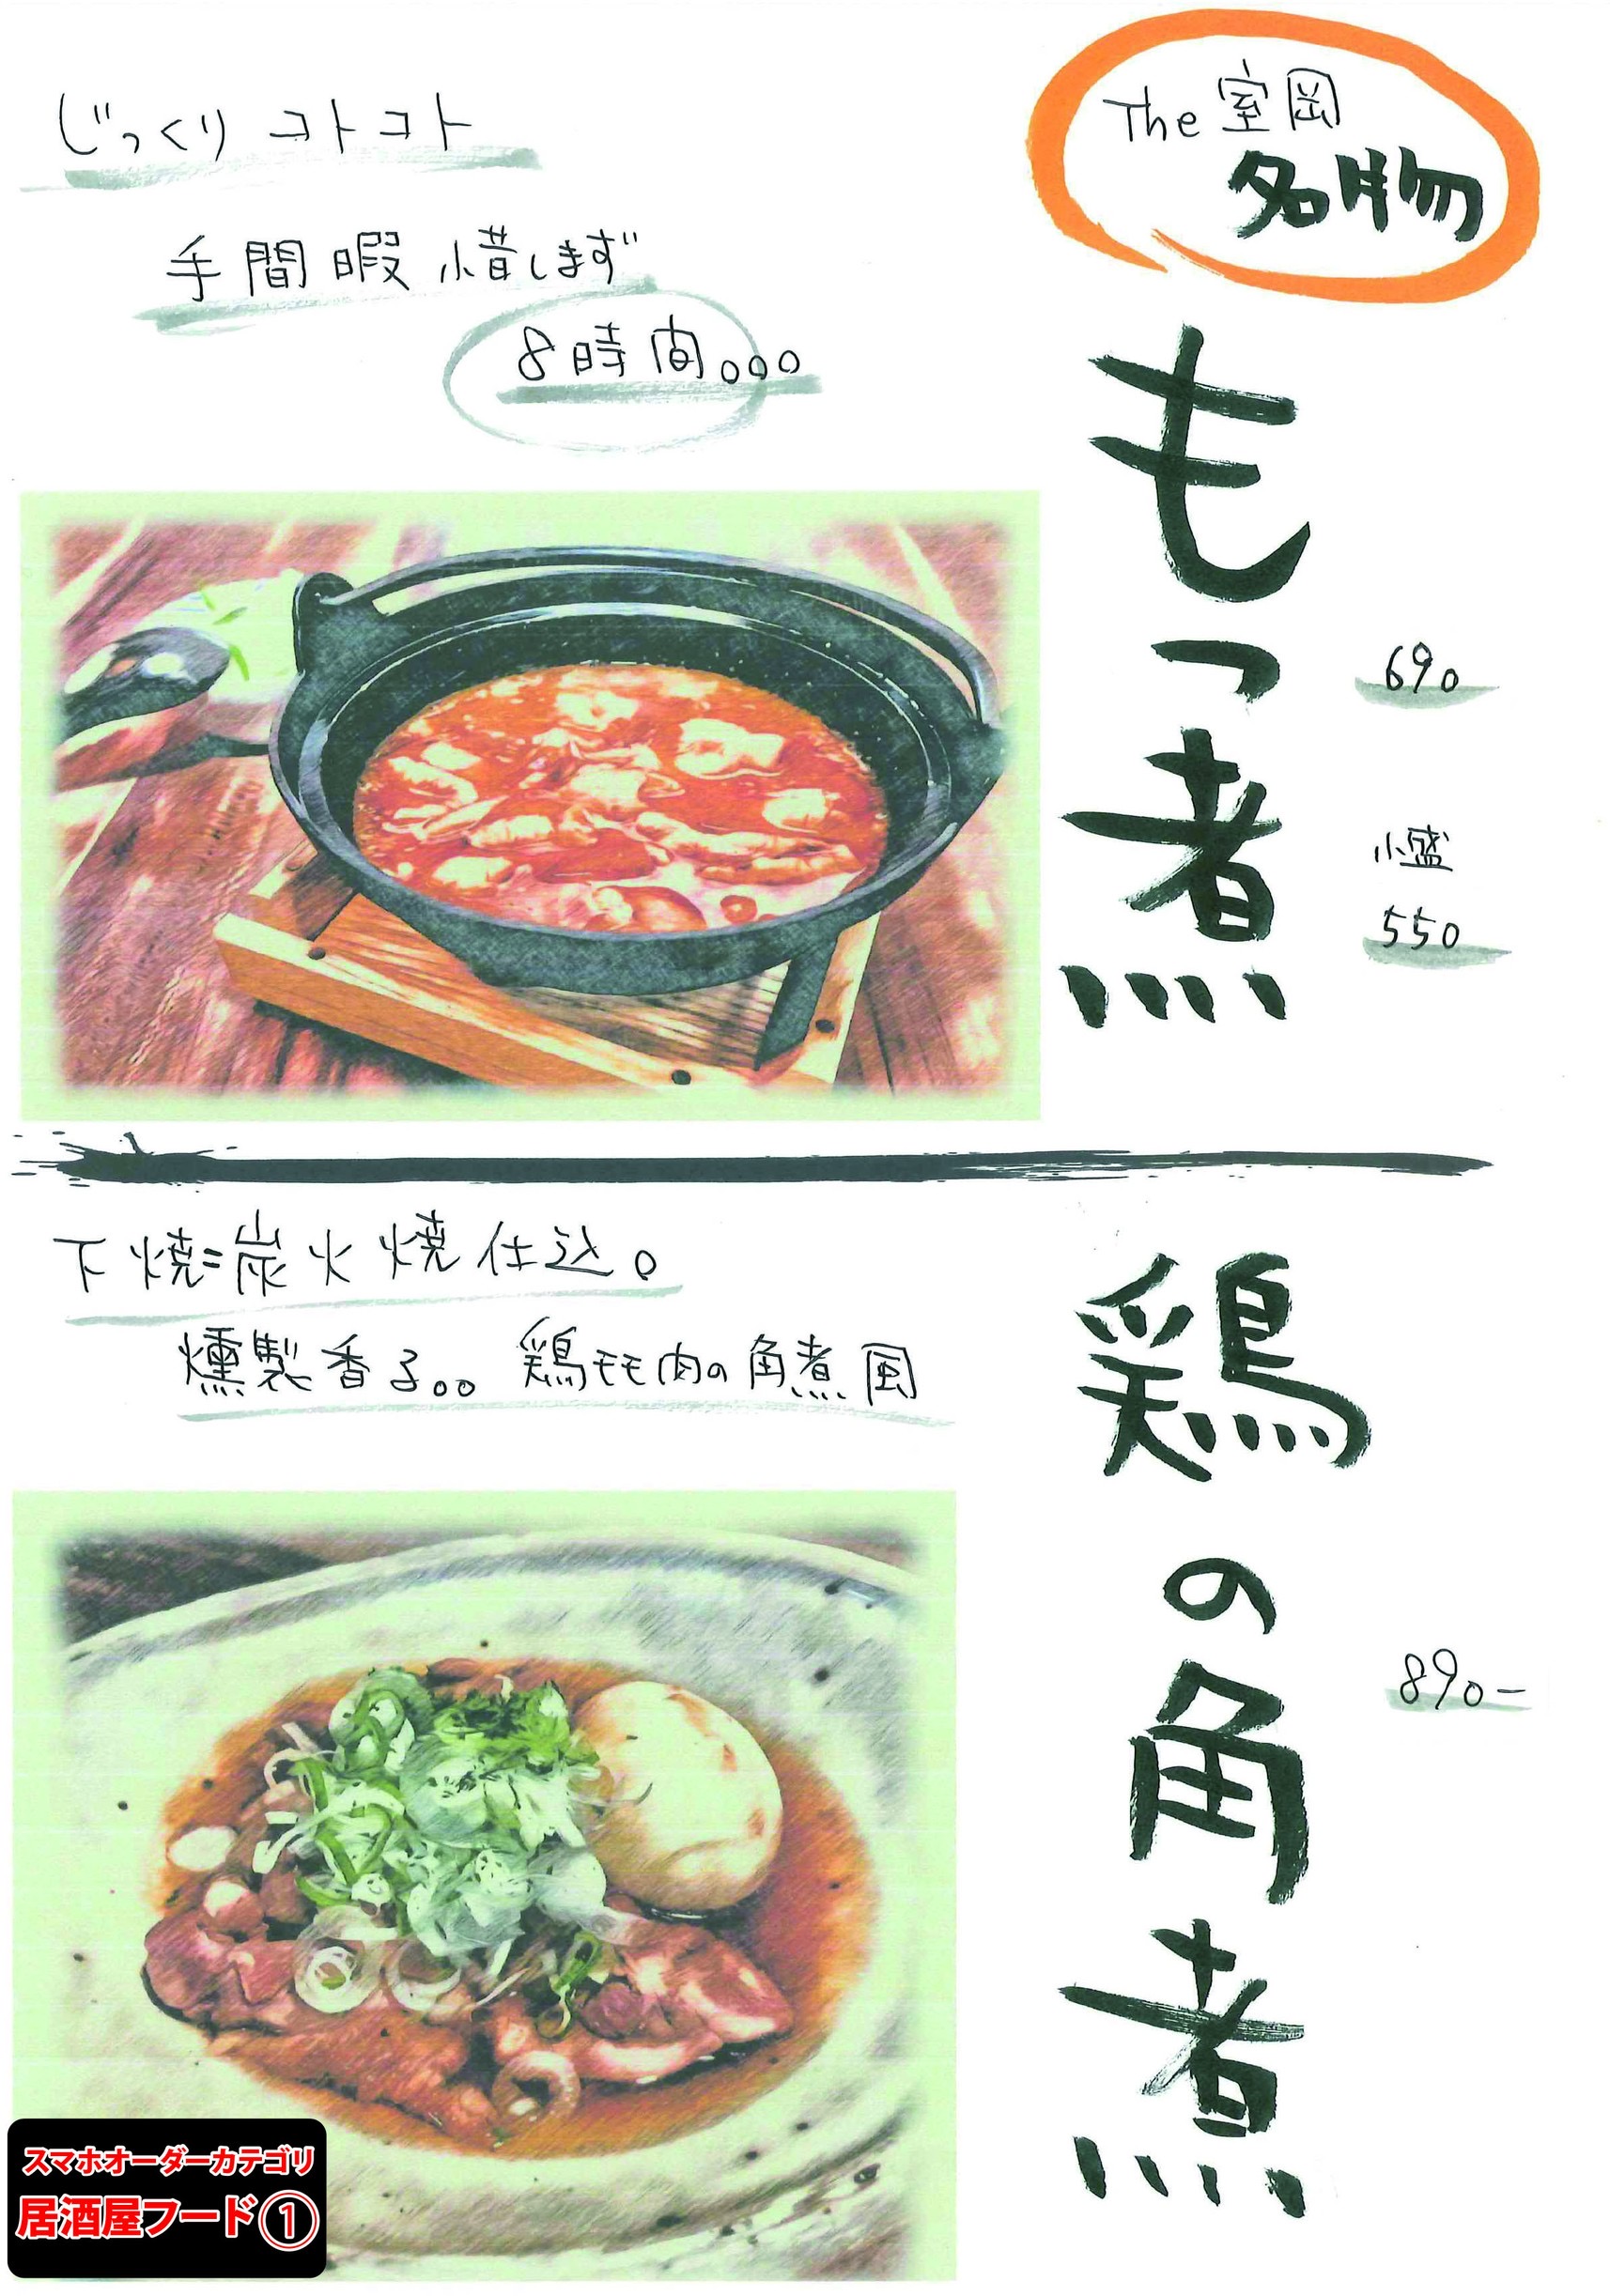 The 室岡
名物
じっくり コトコト
手間暇 惜しまず
8時間。。。
もつ煮
690
小盛
550
下焼=炭火焼仕込。
燻製香る。。鶏モモ肉の角煮風
鶏の角煮
890-
スマホオーダーカテゴリ
居酒屋フード①